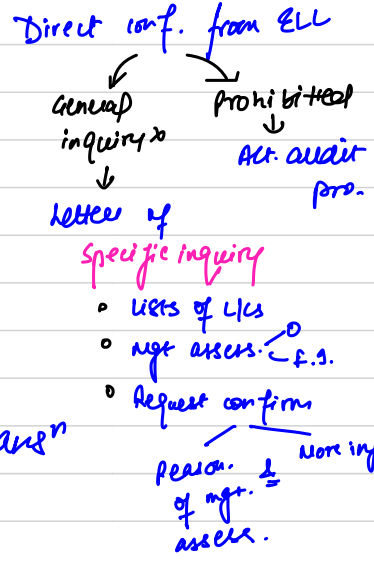 Direct conf. from ELL
General
inquiry x
Prohibited
Alt. audit
pro.
Letter of
specific inquiry
Lists of L/Cs
mgt assess. O
F.I.
Request confirm
Reason. &
of mgt.
assess.
More inf